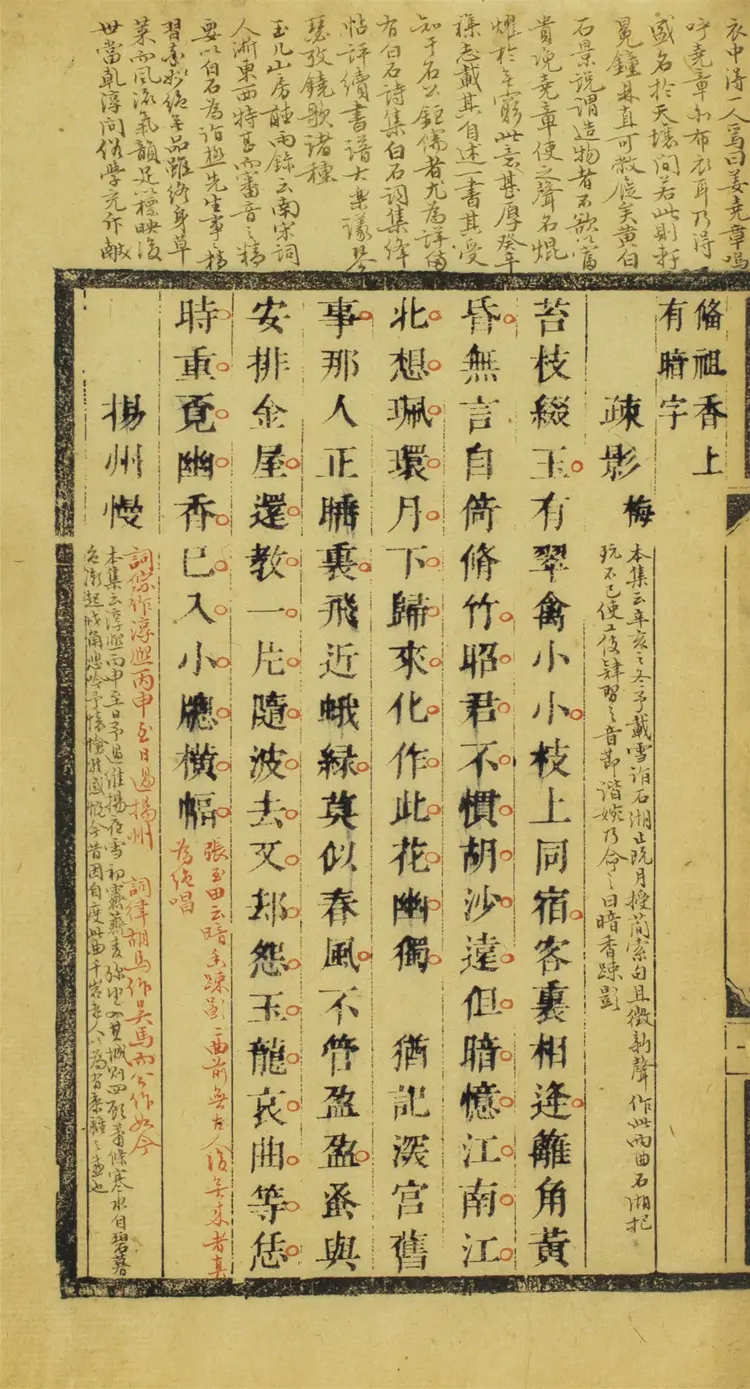 衣中得一人焉曰姜堯章嗚
呼堯章布衣耳乃得
盛名於天壤間若此則軒
冕鐘鼎真可敝屣矣黃白
石景說謂造物者不欲以富
貴浼堯章使之聲名焜
燿於無窮此意甚厚癸辛
雜志載其自述一書其受
知于石公鉅儒者尤為詳備
有白石詩集白石詞集絳
帖評續書譜大樂議琴
瑟攷鐃歌諸種
玉几山房聽雨錄云南宋詞
人浙東西特甚而審音之精
要以白石為詣極先生事
習妙絕品雖終身草
萊而風流氣韻足以標映後
世當乾淳間俗學充斥
脩祖香上
有暗字
疎影 梅
本集云辛亥之冬予載雪詣石湖止既月授簡索句且徵新聲 作此兩曲石湖把
玩不已使工伎肄習之音節諧婉乃命之曰暗香疎影
苔枝綴玉有翠禽小小枝上同宿客裏相逢籬角黃
昏無言自倚脩竹昭君不慣胡沙遠但暗憶江南江
北想珮環月下歸來化作此花幽獨 猶記深宮舊
事那人正睡裏飛近蛾綠莫似春風不管盈盈蚤與
安排金屋還教一片隨波去又却怨玉龍哀曲等恁
時重覓幽香已入小牕橫幅
張玉田云暗香疎影二曲前無古人後無來者真
為絕唱
揚州慢
詞宗作淳熙丙申至日過揚州 詞律胡馬作吳馬而公作如今
本集云淳熙丙申至日予過維揚夜雪初霽薺麥彌望入其城則四顧蕭條寒水自碧暮
色漸起戍角悲吟予懷愴然感慨今昔因自度此曲千岩老人以為有黍離之悲也